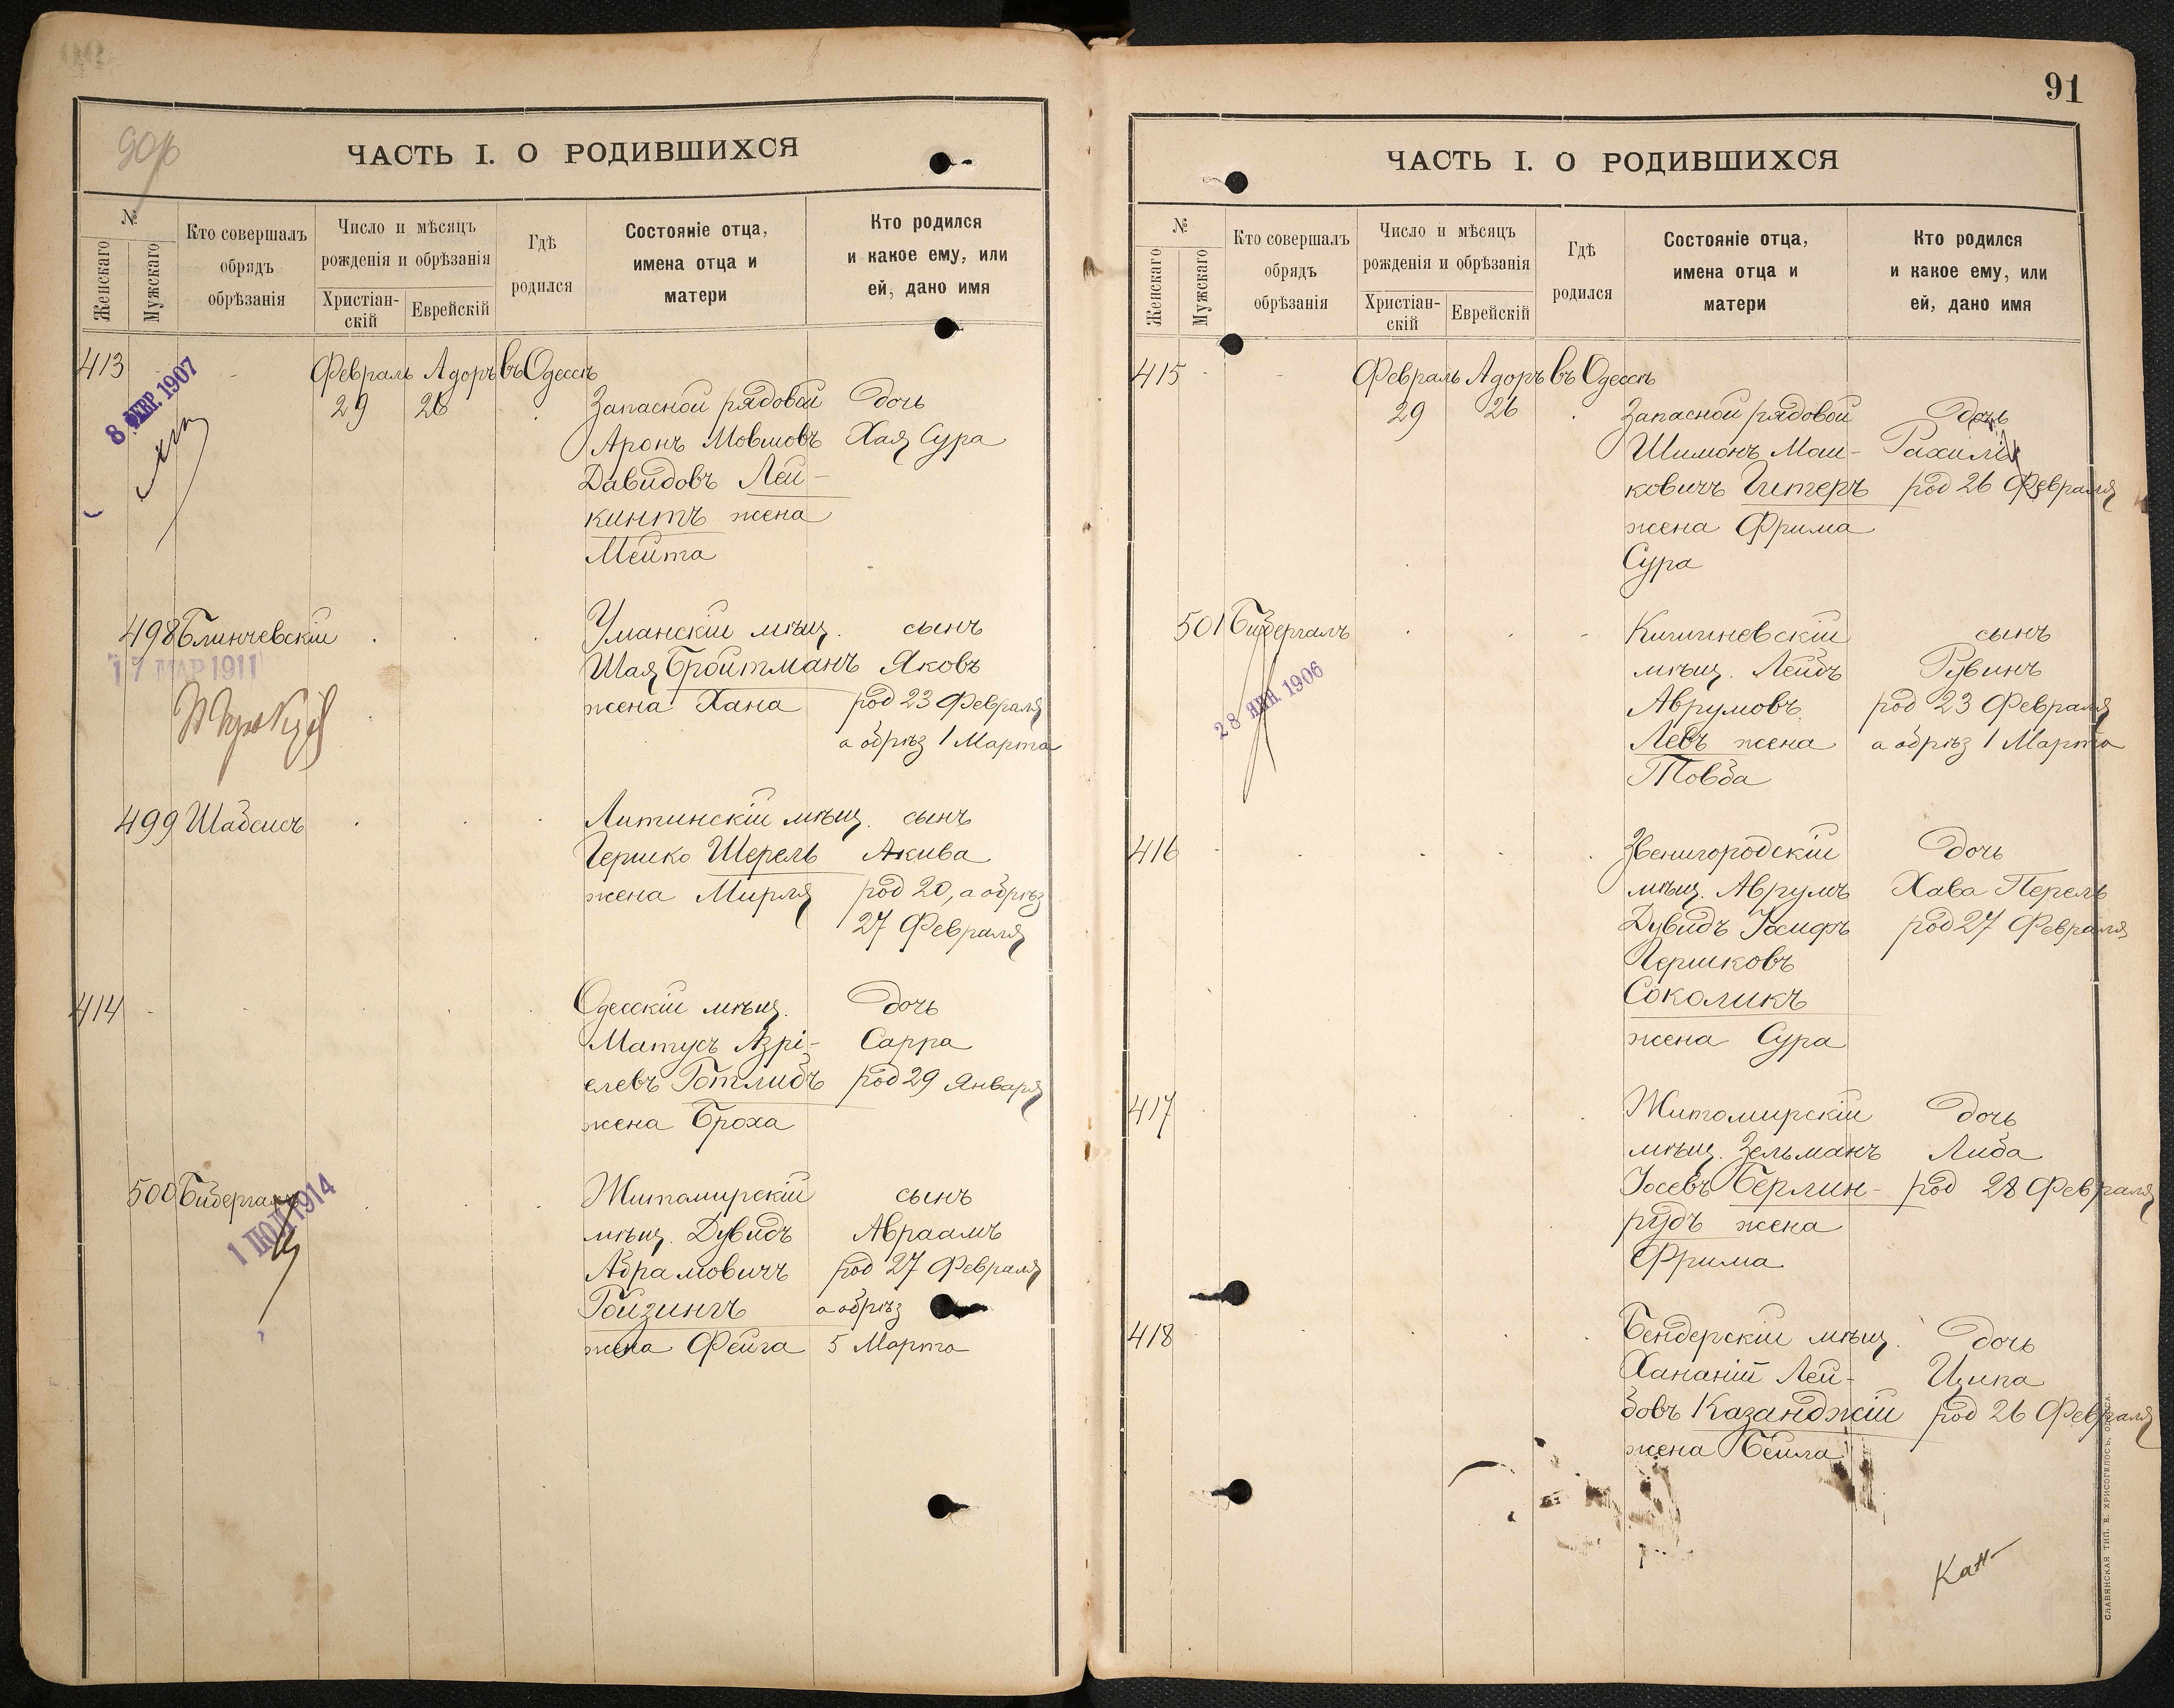 90
ЧАСТЬ I. О РОДИВШИХСЯ
№
Женскаго
Мужскаго
Кто совершалъ
обрядъ
обрѣзанія
Число и мѣсяцъ
рожденія и обрѣзанія
Христіан-
скій
Еврейскій
Гдѣ
родился
Состояніе отца,
имена отца и
матери
Кто родился
и какое ему, или
ей, дано имя
413 Февраль Адоръ въ Одессѣ
8 ФЕВР. 1907
29 26 Запасной рядовой дочь
Аронъ Мовшовъ Хая Сура
Давидовъ Лей-
кинтъ жена
Мейта
498 Блинчевскій Уманскій мѣщ. сынъ
17 МАР 1911
Шая Бройтманъ Яковъ
жена Хана род 23 Февраля
а обрѣз 1 Марта
499 Шабсисъ Литинскій мѣщ. сынъ
Гершко Шерель Акива
жена Мирля род 20, а обрѣз
27 Февраля
414 Одесскій мѣщ. дочь
Матусъ Азрі- Сарра
елевъ Готлибъ род 29 Января
жена Броха
500 Бибергалъ Житомирскій сынъ
1 ІЮЛ 1914
мѣщ. Дувидъ Авраамъ
Абрамовичъ род 27 Февраля
Гойзингъ а обрѣз
жена Фейга 5 Марта
91
ЧАСТЬ I. О РОДИВШИХСЯ
№
Женскаго
Мужскаго
Кто совершалъ
обрядъ
обрѣзанія
Число и мѣсяцъ
рожденія и обрѣзанія
Христіан-
скій
Еврейскій
Гдѣ
родился
Состояніе отца,
имена отца и
матери
Кто родился
и какое ему, или
ей, дано имя
415 Февраль Адоръ въ Одессѣ
29 26 Запасной рядовой дочь
Шимонъ Мош-
ковичъ Гитеръ род 26 Февраля
жена Фрима
Сура
501 Бибергалъ Кишиневскій сынъ
28 ЯНВ. 1906
мѣщ. Лейбъ Рувинъ
Аврумовъ род 23 Февраля
Левъ жена а обрѣз 1 Марта
Товба
416 Звенигородскій дочь
мѣщ. Аврумъ Хава Перель
Дувидъ Іосифъ род 27 Февраля
Гершковъ
Соколикъ
жена Сура
417 Житомирскій дочь
мѣщ. Зельманъ Либа
Іосевъ Берлин- род 28 Февраля
рудъ жена
Фрима
418 Бендерскій мѣщ. дочь
Хананій Лей- Ципа
бовъ Казанджій род 26 Февраля
жена Бейла
СЛАВЯНСКАЯ ТИП. Е. ХРИСОГЕЛОСЪ, ОДЕССА.